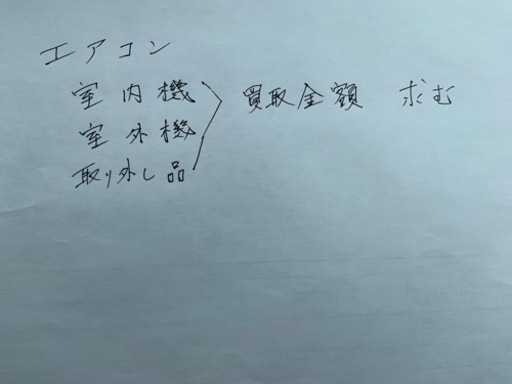 エアコン
室内機
室外機
取り外し品
買取金額 求む